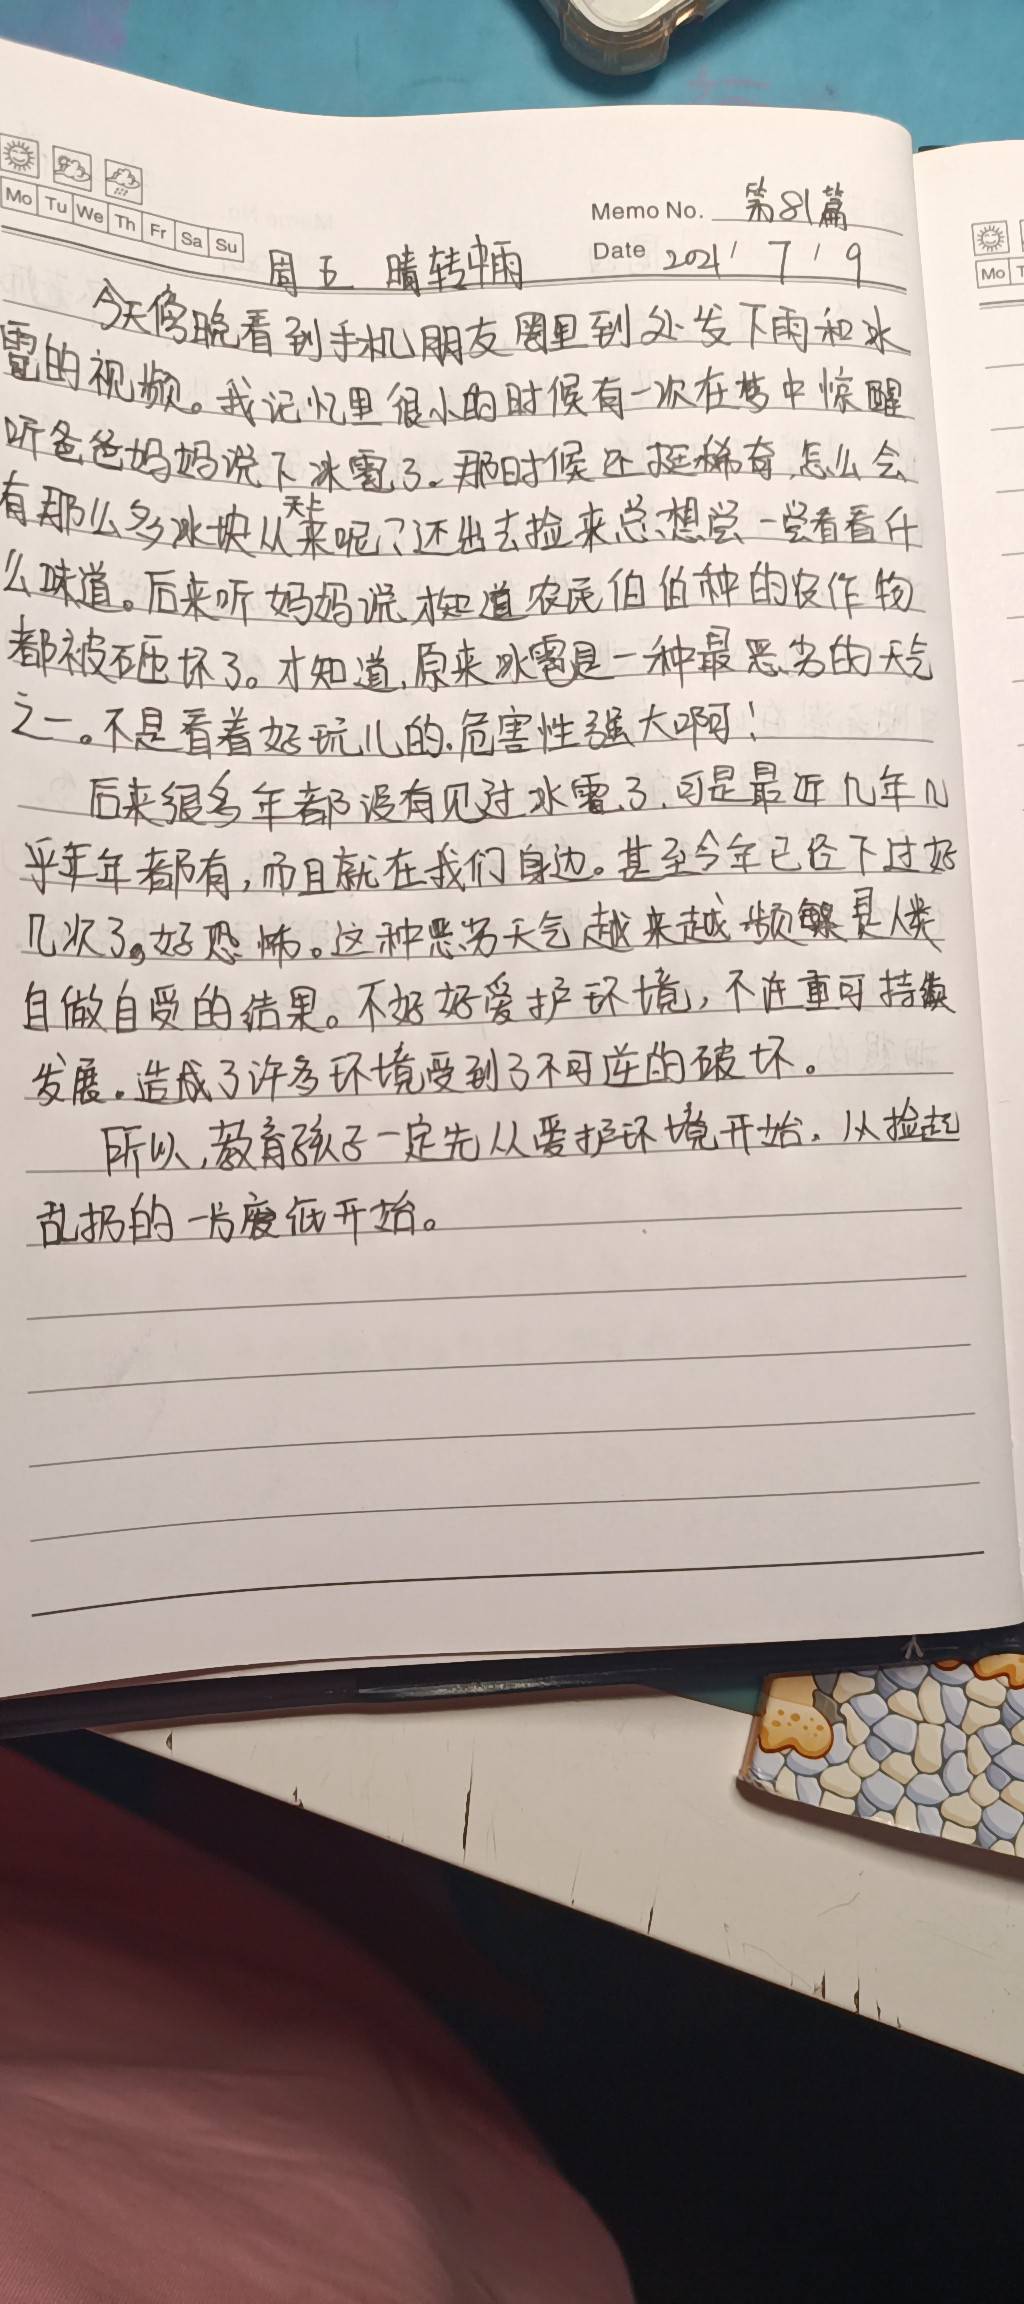 Mo Tu We Th Fr Sa Su
Memo No. 第81篇
Date 2021 / 7 / 9
周五 晴转中雨
今天傍晚看到手机朋友圈里到处发下雨和冰
雹的视频。我记忆里很小的时候有一次在梦中惊醒
听爸爸妈妈说下冰雹了。那时候还挺稀奇,怎么会
有那么多冰块从天上来呢?还出去捡来总想尝一尝看看什
么味道。后来听妈妈说才知道农民伯伯种的农作物
都被砸坏了。才知道,原来冰雹是一种最恶劣的天气
之一。不是看着好玩儿的.危害性强大啊!
后来很多年都没有见过冰雹了.可是最近几年几
乎年年都有,而且就在我们身边。甚至今年已经下过好
几次了。好恐怖。这种恶劣天气越来越频繁是人类
自做自受的结果。不好好爱护环境,不注重可持续
发展.造成了许多环境受到了不可逆的破坏。
所以,教育孩子一定先从爱护环境开始.从捡起
乱扔的一片废纸开始。
Mo